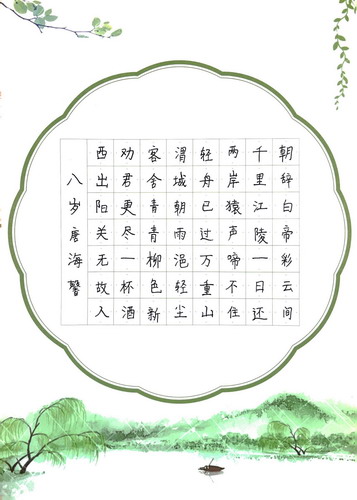 朝辞白帝彩云间
千里江陵一日还
两岸猿声啼不住
轻舟已过万重山
渭城朝雨浥轻尘
客舍青青柳色新
劝君更尽一杯酒
西出阳关无故入
八岁唐海